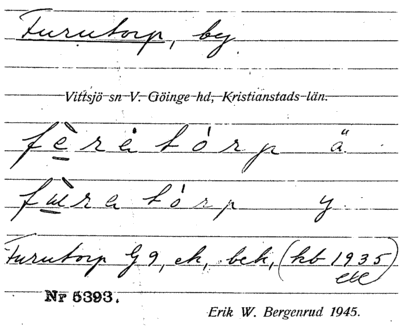 Furutorp, by
Vittsjö sn V. Göinge hd, Kristianstads län.
fèratórp ä.
fùratórp y
Furutorp G9, ek, bek, (kb 1935
etc
Nr 5393.
Erik W. Bergenrud 1945.